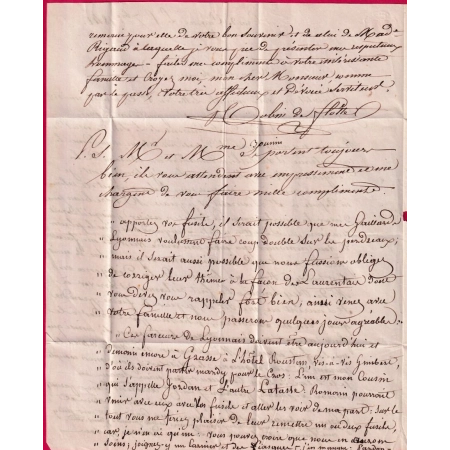 remercie pour elle de votre bon souvenir et de celui de Mad.e
Rigaud à laquelle je vous prie de présenter mes respectueux
hommages - faites mes compliments à votre intéressante
famille et croyez moi, mon cher Monsieur comme
par le passé, votre très affectueux et dévoué serviteur
P. S. Md et Mme Jouvin se portent toujours
bien, ils vous attendent avec empressement et me
chargent de vous faire mille compliments.
" apportez vos fusils, il serait possible que nos Gaillards
" Lyonnais voulussent faire coup double sur les perdreaux;
" mais il serait aussi possible que nous fussions obligés
" de corriger leur thème à la façon de Laurentau dont
" vous devez vous rappeler fort bien, ainsi venez avec
" votre famille et nous passerons quelques jours agréables.
" Ces farceurs de Lyonnais doivent être aujourd'hui et
" demain encore à Grasse à l'hôtel Roustan vis-à-vis Gimbert,
" d'où ils doivent partir mardy pour le Cros. L'un est mon Cousin
" qui s'appelle Jordan et l'autre Latasse. Romain pourrait
" venir avec eux avec les fusils et aller les voir de ma part. Sur le
" tout vous me feriez plaisir de leur remettre un ou deux fusils,
" car je n'en ai qu'un. vous pouvez croire que nous en aurons
" soins; joignez-y un carnier et des